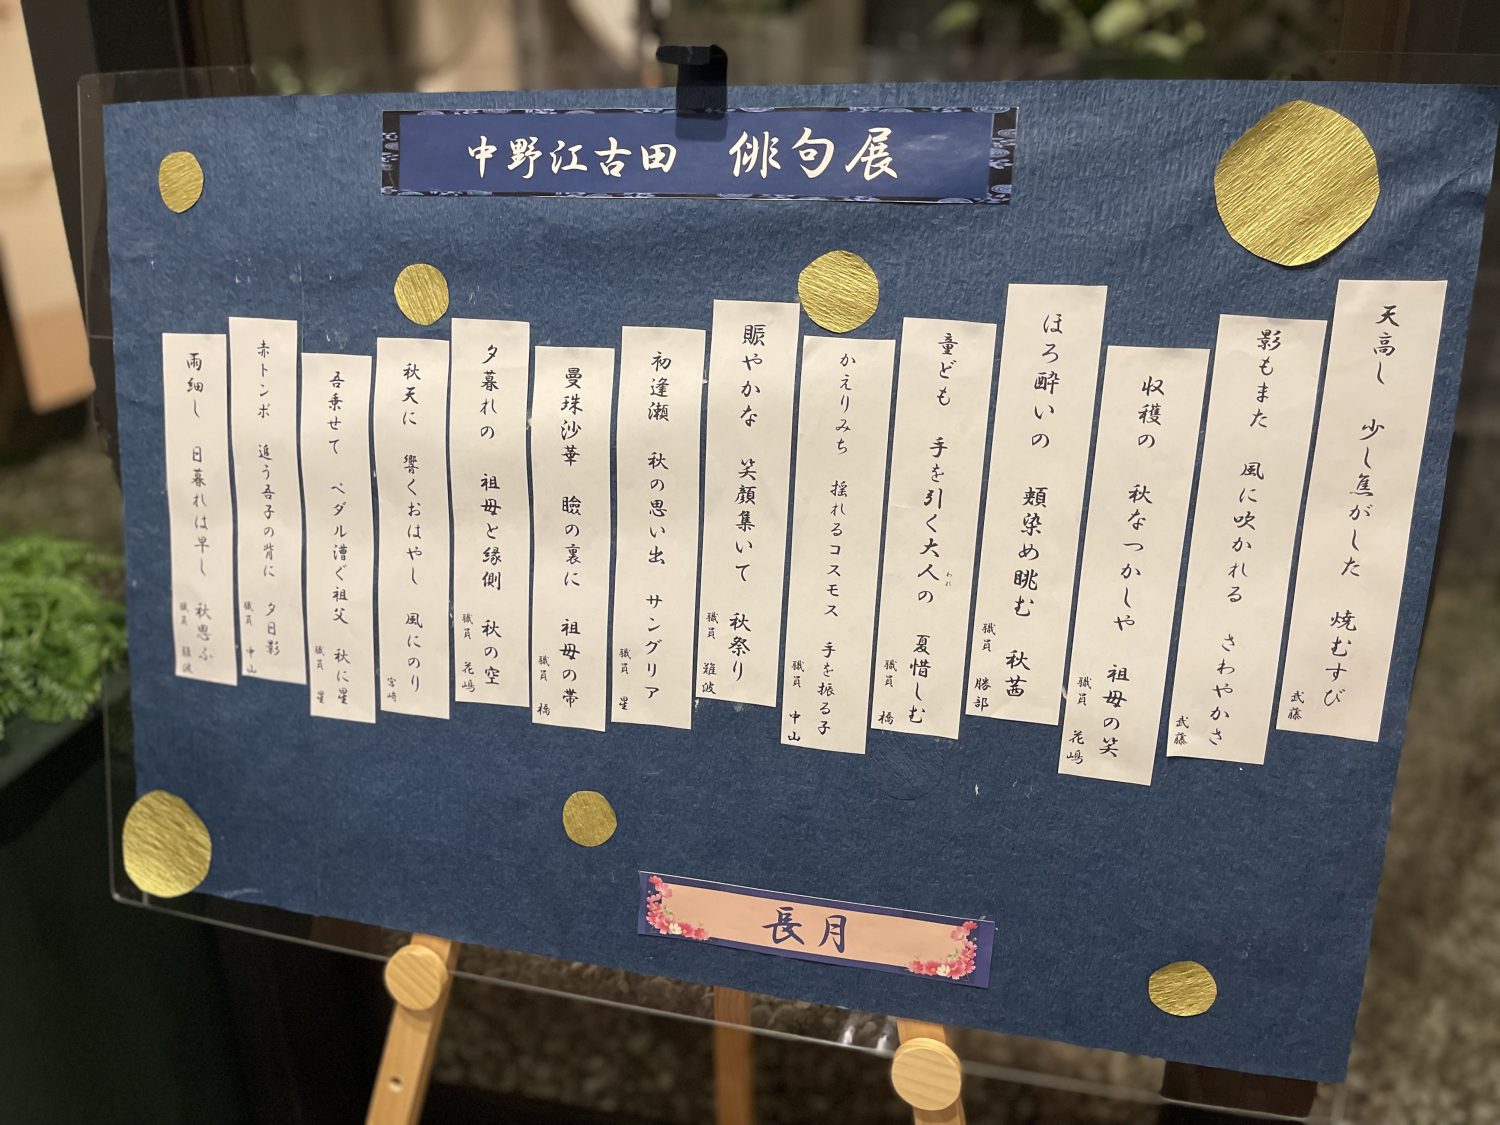 中野江古田 俳句展
天高し 少し焦がした 焼むすび
武藤
影もまた 風に吹かれる さわやかさ
武藤
収穫の 秋なつかしや 祖母の笑
職員 花嶋
ほろ酔いの 頬染め眺む 秋茜
職員 勝部
童ども 手を引く大人の 夏惜しむ
われ
職員 橋
かえりみち 揺れるコスモス 手を振る子
職員 中山
賑やかな 笑顔集いて 秋祭り
職員 難波
初逢瀬 秋の思い出 サングリア
職員 星
曼珠沙華 瞼の裏に 祖母の帯
職員 橋
夕暮れの 祖母と縁側 秋の空
職員 花嶋
秋天に 響くおはやし 風にのり
宮崎
吾乗せて ペダル漕ぐ祖父 秋に星
職員 星
赤トンボ 追う吾子の背に 夕日影
職員 中山
雨細し 日暮れは早し 秋思ふ
職員 難波
長月